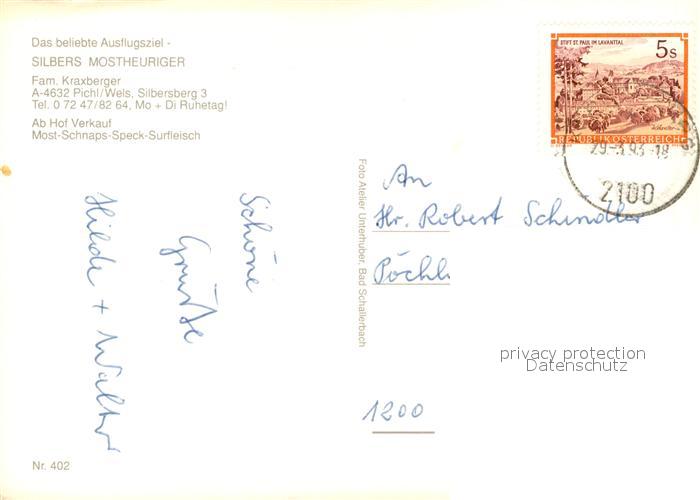 Das beliebte Ausflugsziel -
SILBERS MOSTHEURIGER
Fam. Kraxberger
A-4632 Pichl/Wels, Silbersberg 3
Tel. 0 72 47/82 64, Mo + Di Ruhetag!
Ab Hof Verkauf
Most-Schnaps-Speck-Surfleisch
Schöne
Grüße
Hilde + Walter
Nr. 402
Foto Atelier Unterhuber, Bad Schallerbach
STIFT ST. PAUL IM LAVANTTAL
5s
REPUBLIK ÖSTERREICH
29.-3.93-18
2100
An
Hr. Robert Schindler
Pöchl
1200
privacy protection
Datenschutz